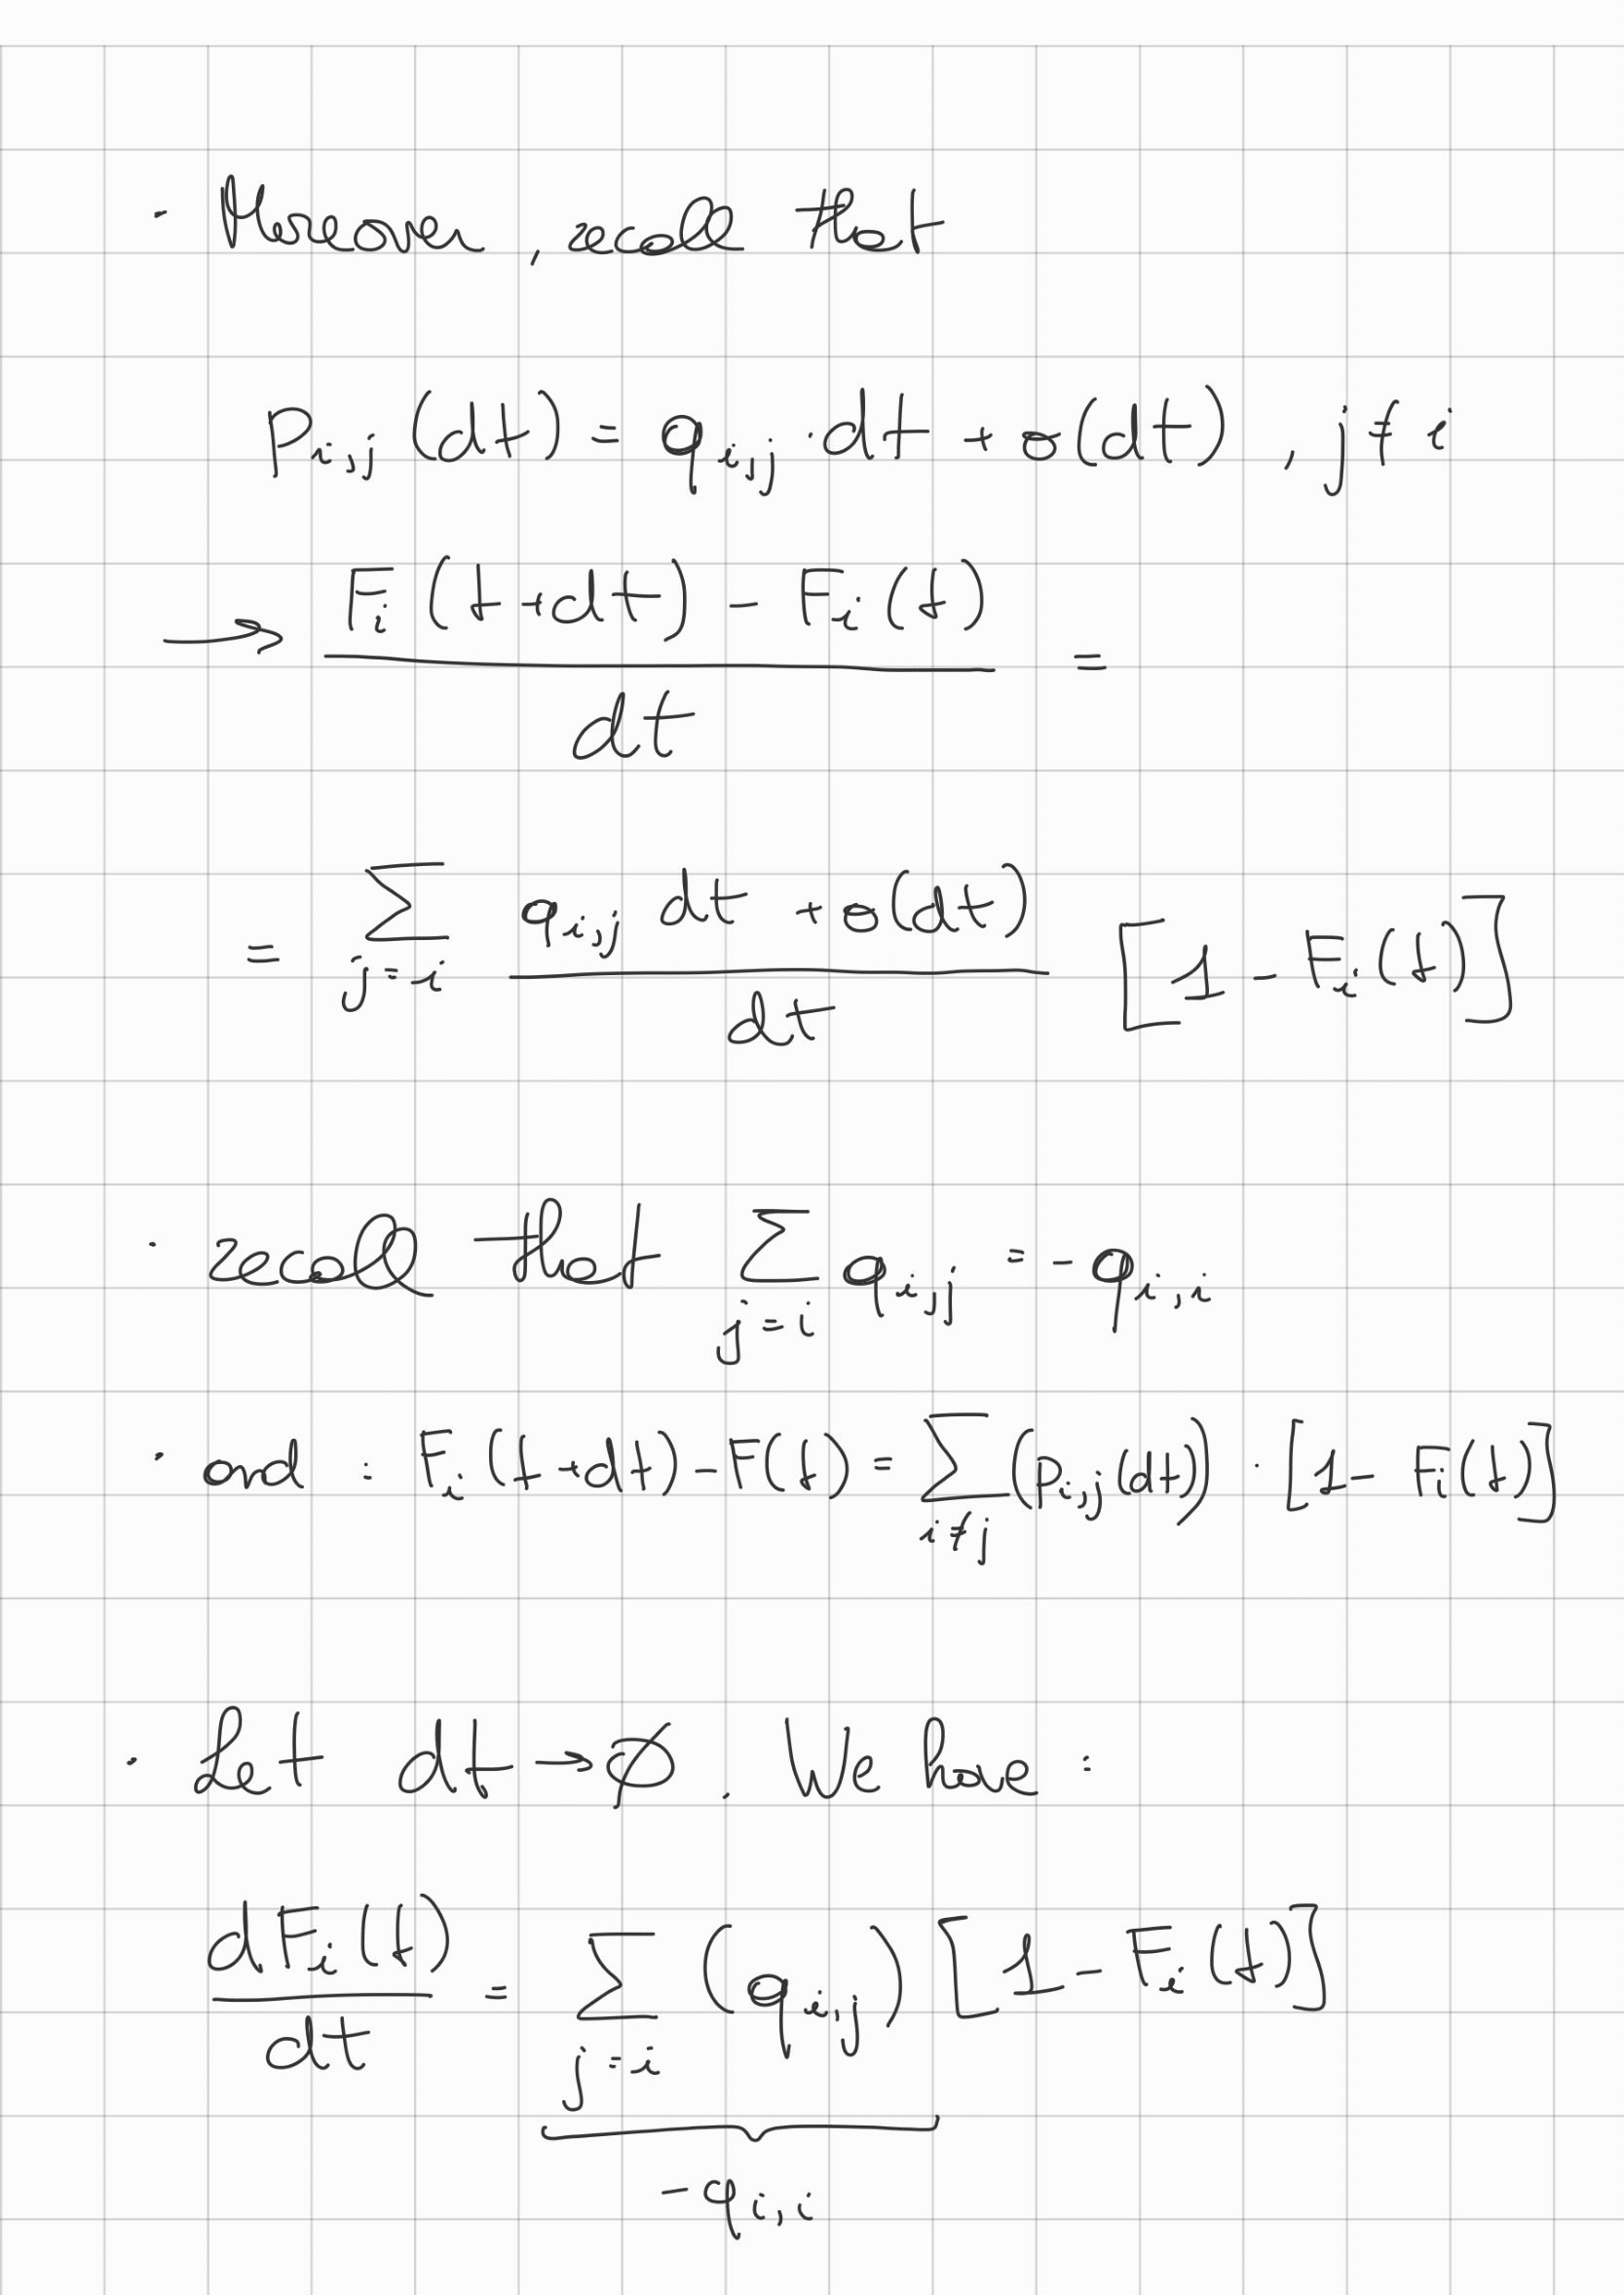 · Moreover, recall that
p_{i,j}(dt) = q_{i,j} · dt + o(dt), j ≠ i
→ \frac{F_i(t+dt) - F_i(t)}{dt} =
= \sum_{j=i} \frac{q_{i,j} dt + o(dt)}{dt} [1 - F_i(t)]
· recall that \sum_{j=i} q_{i,j} = -q_{i,i}
· and : F_i(t+dt) - F(t) = \sum_{i≠j} (p_{i,j}(dt)) · [1 - F_i(t)]
· Let dt → ∅. We have :
\frac{dF_i(t)}{dt} = \sum_{j=i} (q_{i,j}) [1 - F_i(t)]
-q_{i,i}